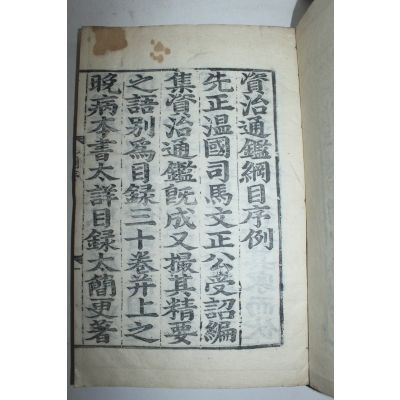 資治通鑑綱目序例
先正温國司馬文正公受詔編
集資治通鑑既成又撮其精要
之語別爲目録三十巻并上之
晩病本書太詳目録太簡更著